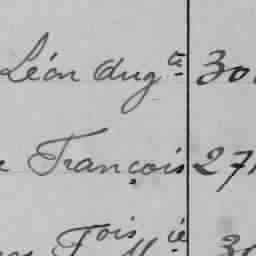 Léon Aug.te 30
François 27
Fois M.ie 30